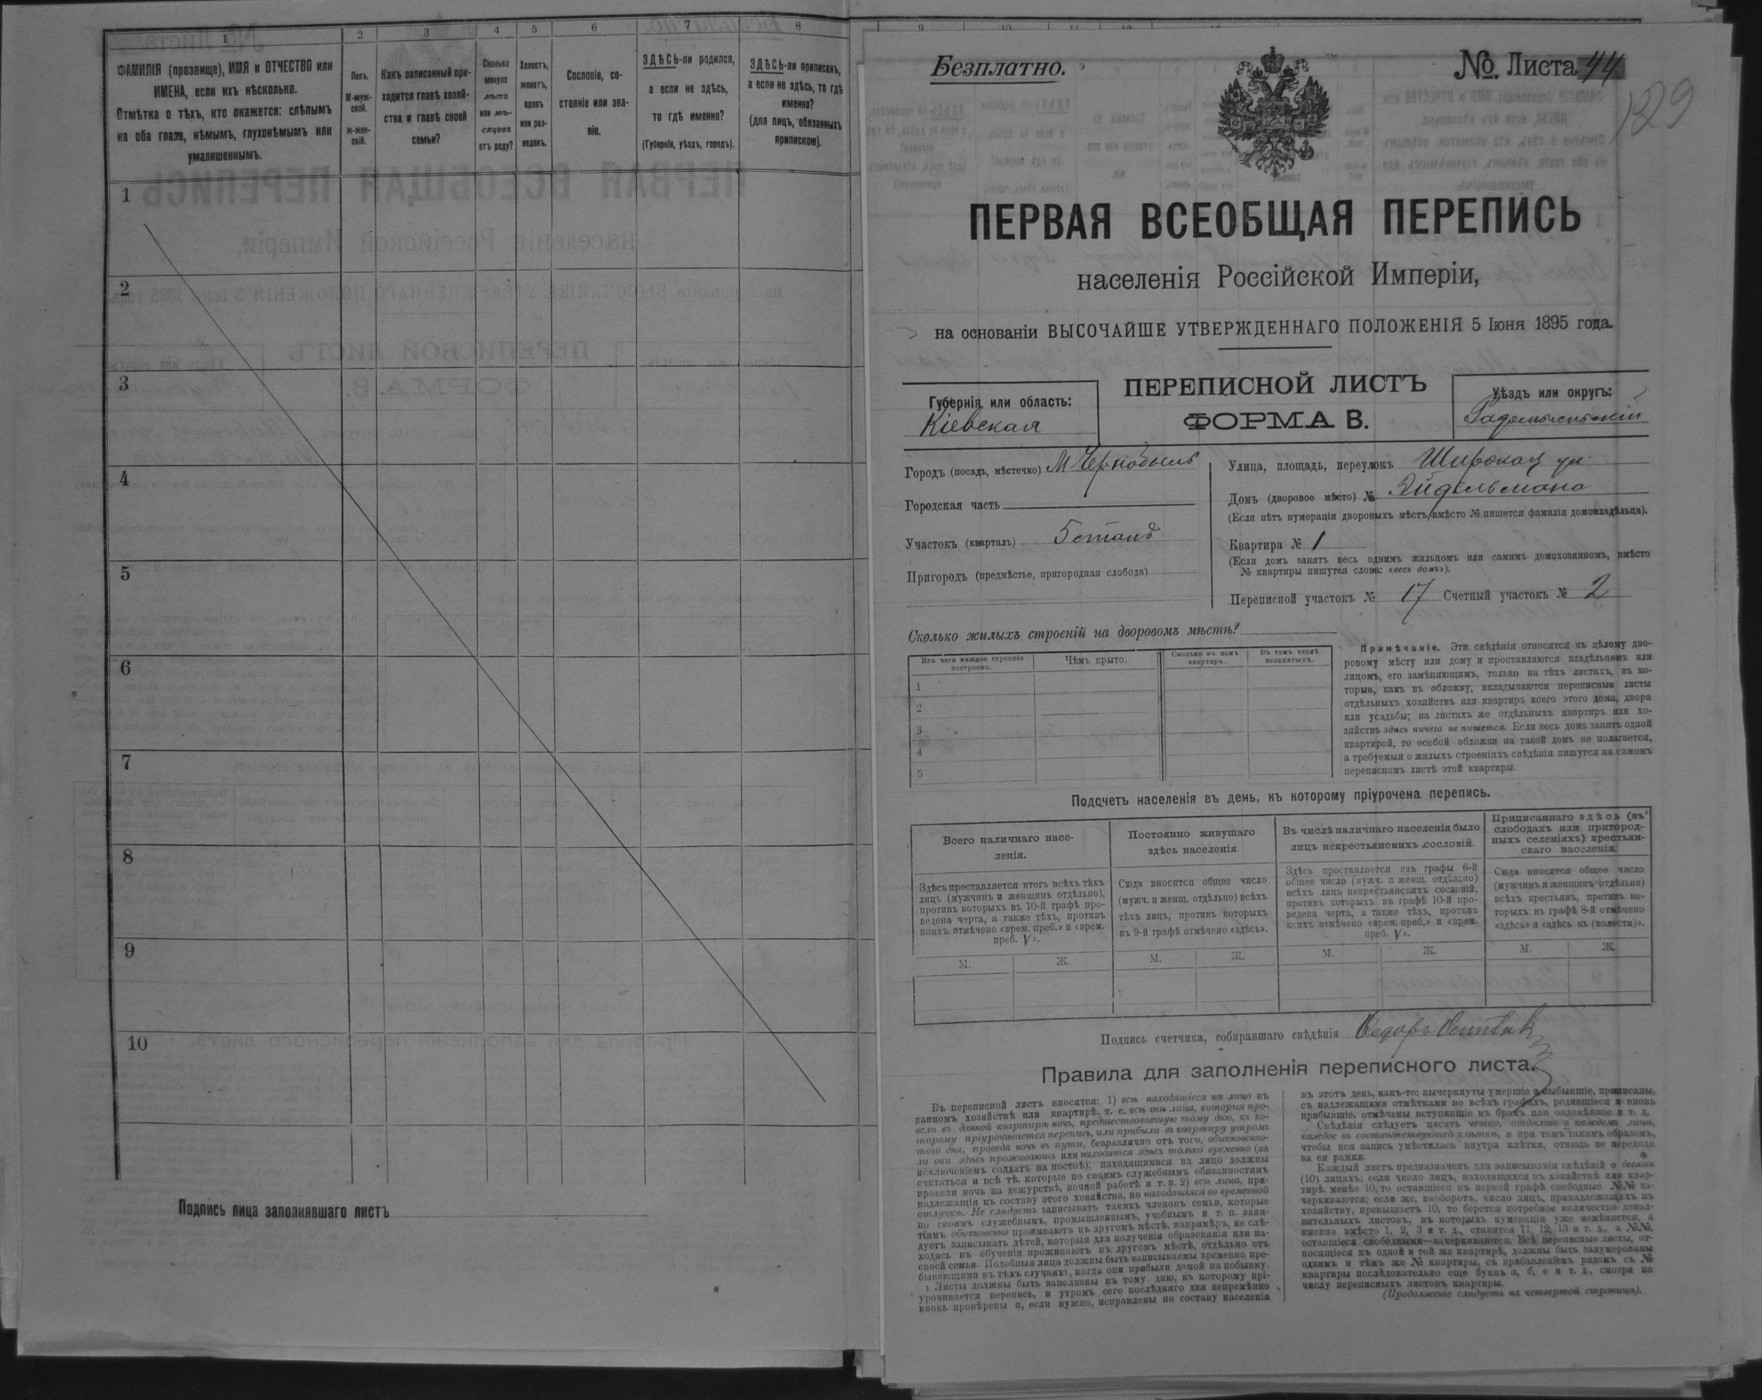 1
2
3
4
5
6
7
8
ФАМИЛІЯ (прозвище), ИМЯ и ОТЧЕСТВО или
ИМЕНА, если ихъ нѣсколько.
Отмѣтка о тѣхъ, кто окажется: слѣпымъ
на оба глаза, нѣмымъ, глухонѣмымъ или
умалишеннымъ.
Полъ.
М-муж-
ской.
Ж-жен-
скій.
Какъ записанный при-
ходится главѣ хозяй-
ства и главѣ своей
семьи?
Сколько
минуло
лѣтъ
или мѣ-
сяцевъ
отъ роду?
Холостъ,
женатъ,
вдовъ
или раз-
веденъ.
Сословіе, со-
стояніе или зва-
ніе.
ЗДѢСЬ-ли родился,
а если не здѣсь,
то гдѣ именно?
(Губернія, уѣздъ, городъ).
ЗДѢСЬ-ли приписанъ,
а если не здѣсь, то гдѣ
именно?
(для лицъ, обязанныхъ
припискою).
1
2
3
4
5
6
7
8
9
10
Подпись лица заполнявшаго листъ
Безплатно.
№ Листа 44
129
ПЕРВАЯ ВСЕОБЩАЯ ПЕРЕПИСЬ
населенія Россійской Имперіи,
на основаніи ВЫСОЧАЙШЕ УТВЕРЖДЕННАГО ПОЛОЖЕНІЯ 5 Іюня 1895 года.
Губернія или область:
Кіевская
ПЕРЕПИСНОЙ ЛИСТЪ
ФОРМА В.
Уѣздъ или округъ:
Радомысльскій
Городъ (посадъ, мѣстечко) М Чернобыль
Городская часть
Участокъ (кварталъ) 5 станъ
Пригородъ (предмѣстье, пригородная слобода)
Улица, площадь, переулокъ Широкая ул.
Домъ (дворовое мѣсто) № Эйдельмана
(Если нѣтъ нумераціи дворовыхъ мѣстъ, вмѣсто № пишется фамилія домовладѣльца).
Квартира № 1
(Если домъ занятъ весь однимъ жильцомъ или самимъ домохозяиномъ, вмѣсто
№ квартиры пишутся слова: «весь домъ»).
Переписной участокъ № 17 Счетный участокъ № 2
Сколько жилыхъ строеній на дворовомъ мѣстѣ?
Изъ чего каждое строеніе
построено.
Чѣмъ крыто.
Сколько въ немъ
квартиръ.
Въ томъ числѣ
незанятыхъ.
1
2
3
4
5
Примѣчаніе. Эти свѣдѣнія относятся къ цѣлому дво-
ровому мѣсту или дому и проставляются владѣльцемъ или
лицомъ, его замѣняющимъ, только на тѣхъ листахъ, въ ко-
торые, какъ въ обложку, вкладываются переписные листы
отдѣльныхъ хозяйствъ или квартиръ всего этого дома, двора
или усадьбы; на листахъ же отдѣльныхъ квартиръ или хо-
зяйствъ здѣсь ничего не пишется. Если весь домъ занятъ одной
квартирой, то особой обложки на такой домъ не полагается,
а требуемыя о жилыхъ строеніяхъ свѣдѣнія пишутся на самомъ
переписномъ листѣ этой квартиры.
Подсчетъ населенія въ день, къ которому пріурочена перепись.
Всего наличнаго насе-
ленія.
Здѣсь проставляется итогъ всѣхъ тѣхъ
лицъ (мужчинъ и женщинъ отдѣльно),
противъ которыхъ въ 10-й графѣ про-
ведена черта, а также тѣхъ, противъ
коихъ отмѣчено «врем. преб.» и «врем.
преб. V».
Постоянно живущаго
здѣсь населенія.
Сюда вносится общее число
(мужч. и женщ. отдѣльно) всѣхъ
тѣхъ лицъ, противъ которыхъ
въ 9-й графѣ отмѣчено «здѣсь».
Въ числѣ наличнаго населенія было
лицъ некрестьянскихъ сословій.
Здѣсь проставляется изъ графы 6-й
общее число (мужч. и женщ. отдѣльно)
всѣхъ лицъ некрестьянскихъ сословій,
противъ которыхъ въ графѣ 10-й про-
ведена черта, а также тѣхъ, противъ
коихъ отмѣчено «врем. преб.» и «врем.
преб. V».
Приписаннаго здѣсь (въ
слободахъ или пригород-
ныхъ селеніяхъ) крестьян-
скаго населенія.
Сюда вносится общее число
(мужчинъ и женщинъ отдѣльно)
всѣхъ крестьянъ, противъ ко-
торыхъ въ графѣ 8-й отмѣчено
«здѣсь» и «здѣсь къ (волости)».
М. Ж. М. Ж. М. Ж. М. Ж.
Подпись счетчика, собиравшаго свѣдѣнія Ѳедоръ
Правила для заполненія переписного листа.
Въ переписной листъ вносятся: 1) всѣ находящіеся на лицо въ
данномъ хозяйствѣ или квартирѣ, т. е. всѣ тѣ лица, которыя про-
вели въ данной квартирѣ ночь, предшествовавшую тому дню, къ ко-
торому пріурочивается перепись, или прибыли въ квартиру утромъ
того дня, проведя ночь въ пути, безразлично отъ того, обыкновенно-
ли они здѣсь проживаютъ или находятся здѣсь только временно (за
исключеніемъ солдатъ на постоѣ); находящимися на лицо должны
считаться и всѣ тѣ, которые по своимъ служебнымъ обязанностямъ
провели ночь на дежурствѣ, ночной работѣ и т. п. 2) всѣ лица, при-
надлежащія къ составу этого хозяйства, но находящіяся во временной
отлучкѣ. Не слѣдуетъ записывать такихъ членовъ семьи, которые
по своимъ служебнымъ, промышленнымъ, учебнымъ и т. п. заня-
тіямъ обыкновенно проживаютъ въ другомъ мѣстѣ, напримѣръ, не слѣ-
дуетъ записывать дѣтей, которыя для полученія образованія или на-
ходясь въ обученіи проживаютъ въ другомъ мѣстѣ, отдѣльно отъ
своей семьи. Подобныя лица должны быть записываемы временно пре-
бывающими въ тѣхъ случаяхъ, когда они прибыли домой на побывку.
Листы должны быть заполнены къ тому дню, къ которому прі-
урочивается перепись, и утромъ сего послѣдняго дня непремѣнно
вновь провѣрены и, если нужно, исправлены по составу населенія
въ этотъ день, какъ-то: вычеркнуты умершіе и выбывшіе, приписаны,
съ надлежащими отмѣтками во всѣхъ графахъ, родившіеся и вновь
прибывшіе, отмѣчены вступившіе въ бракъ или овдовѣвшіе и т. д.
Свѣдѣнія слѣдуетъ писать четко, отдѣльно о каждомъ лицѣ,
каждое въ соотвѣтствующей клѣткѣ, и при томъ такимъ образомъ,
чтобы вся запись умѣстилась внутри клѣтки, отнюдь не переходя
за ея рамки.
Каждый листъ предназначенъ для записыванія свѣдѣній о десяти
(10) лицахъ; если число лицъ, находящихся въ хозяйствѣ или квар-
тирѣ, менѣе 10, то оставшіеся въ первой графѣ свободные №№ за-
черкиваются; если же, наоборотъ, число лицъ, принадлежащихъ къ
хозяйству, превышаетъ 10, то берется потребное количество допол-
нительныхъ листовъ, въ которыхъ нумерація уже измѣняется, а
именно вмѣсто 1, 2, 3 и т. д., ставится 11, 12, 13 и т. д., а №№,
оставшіеся свободными—зачеркиваются. Всѣ переписные листы, от-
носящіеся къ одной и той же квартирѣ, должны быть занумерованы
однимъ и тѣмъ же № квартиры, съ прибавленіемъ рядомъ съ №
квартиры послѣдовательно еще буквъ а, б, в и т. д., смотря по
числу переписныхъ листовъ квартиры.
(Продолженіе слѣдуетъ на четвертой страницѣ).